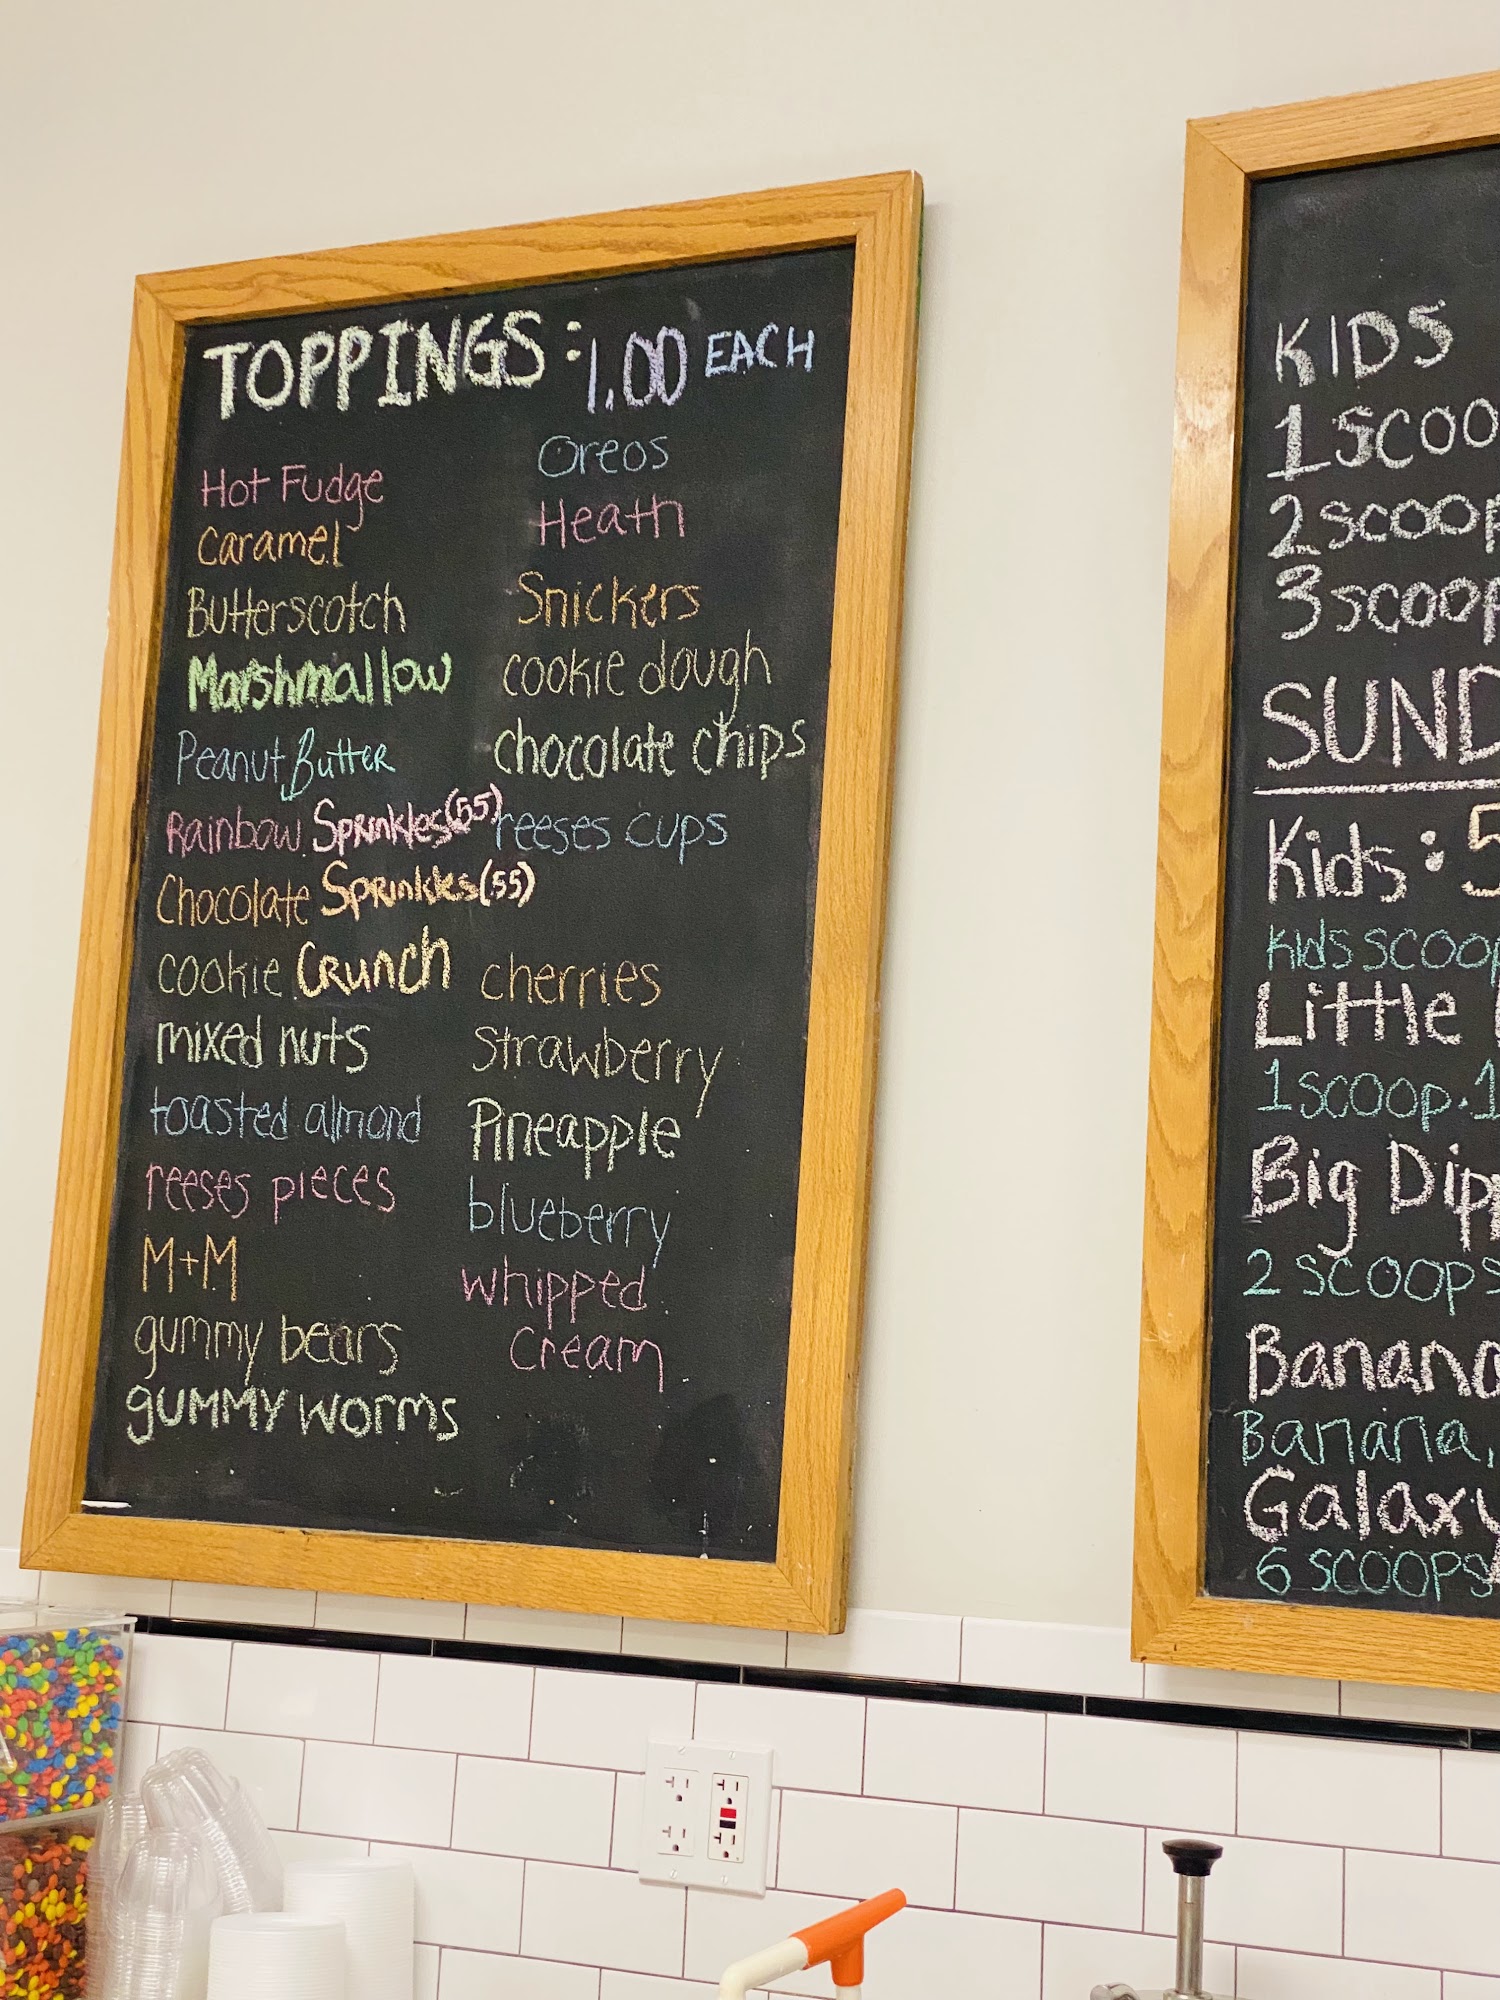 TOPPINGS: 1.00 EACH
Hot Fudge
Caramel
Butterscotch
Marshmallow
Peanut Butter
Rainbow Sprinkles (.55)
Chocolate Sprinkles (.55)
cookie Crunch
mixed nuts
toasted almond
reeses pieces
M+M
gummy bears
gummy worms
Oreos
Heath
Snickers
cookie dough
chocolate chips
reeses cups
cherries
Strawberry
Pineapple
blueberry
whipped
cream
KIDS
1 SCOO
2 SCOOP
3 SCOOP
SUND
Kids: 5
Kids SCOOP
Little
1 SCOOP. 1
Big Dipp
2 SCOOPS
Banana
Banana,
Galaxy
6 SCOOPS